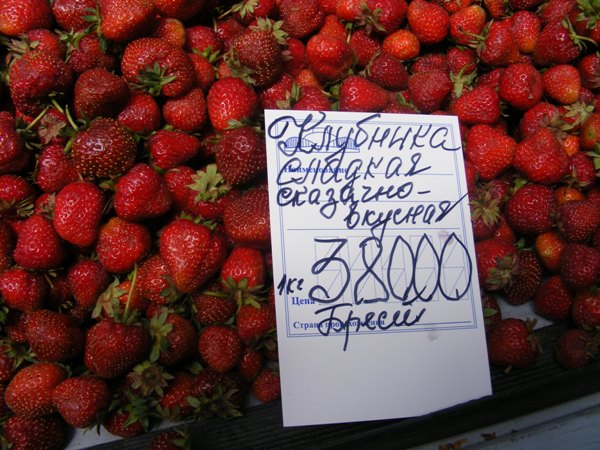 Клубника
Наименование
сладкая
сказочно-
вкусная
1кг Цена 38000
Страна происхождения
Брест